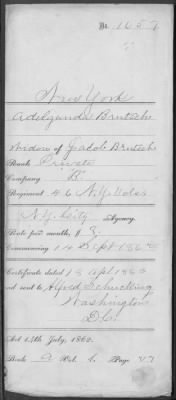 No. 1657
New York
Adelgunde Brutsche
Widow of Jacob Brutsche
Rank Private
Company "B"
Regiment 46 N.Y. Vols
N.Y. City Agency.
Rate per month, $8.
Commencing 14 Sept 186
Certificate dated 18 Apl 186
and sent to Alfred Schucking
Washington
D.C.
Act 14th July, 1862.
Book A Vol. 6 Page 47